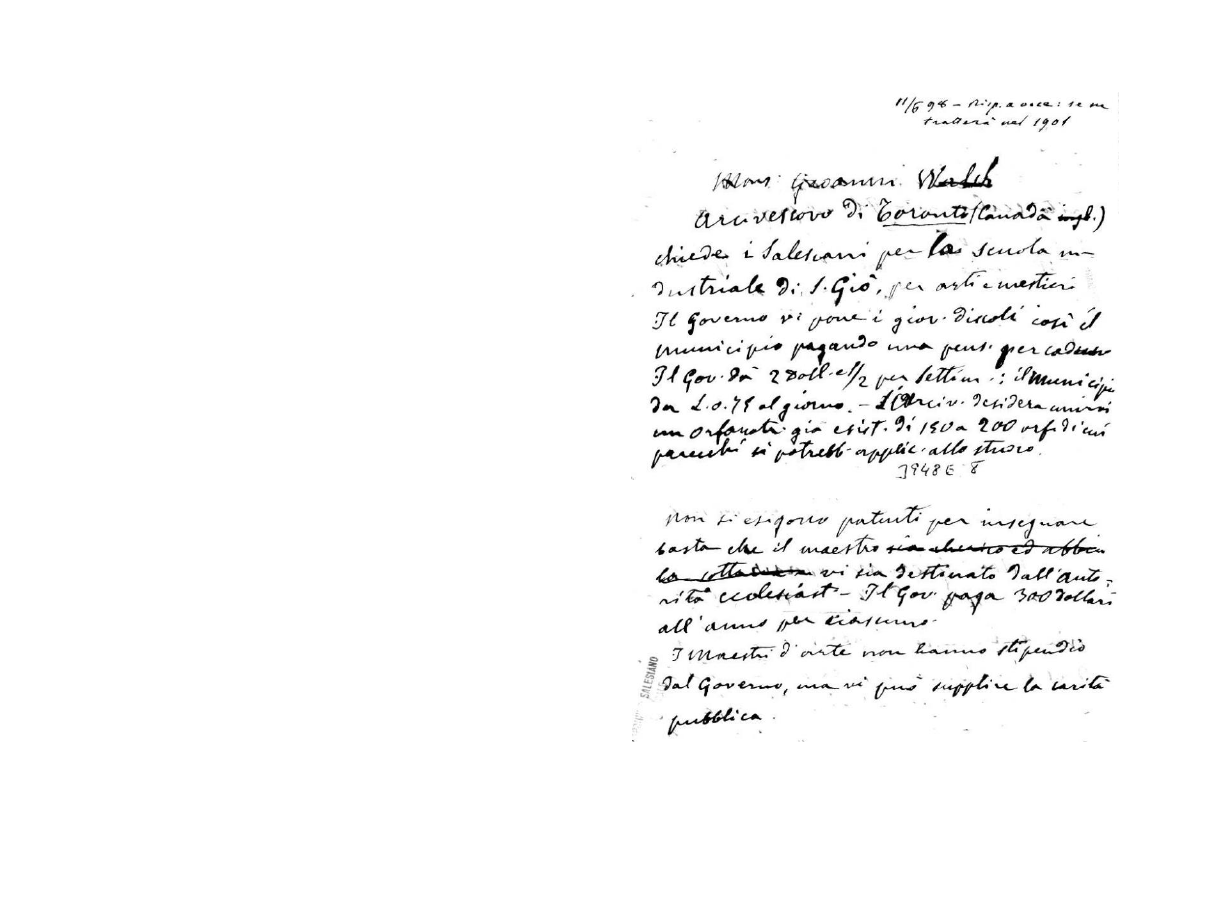 11/6 98 - Risp. a voce: se ne
tratterà nel 1901
Mons. Giovanni Walsh
Arcivescovo di Toronto (Canadà ingl.)
chiede i Salesiani per la scuola in-
dustriale di S. Giò, per arti e mestieri
Il Governo vi pone i giov. discoli così il
municipio pagando una pens. per caduno
Il Gov. dà 2 Doll. e 1/2 per settim.; il Municipi
da L. 0.75 al giorno. - L'Arciv. desidera unirvi
un orfanotr. già esist. di 150 a 200 orf. di cui
parecchi si potrebb. applic. allo studio.
3948 E 8
Non si esigono patenti per insegnare
basta che il maestro sia cherico ed abbia
la vi sia destinato dall'auto-
rità ecclesiast - Il Gov. paga 300 dollari
all'anno per ciascuno.
I Maestri d'arte non hanno stipendio
dal Governo, ma vi può supplire la carità
pubblica.
SALESIANO